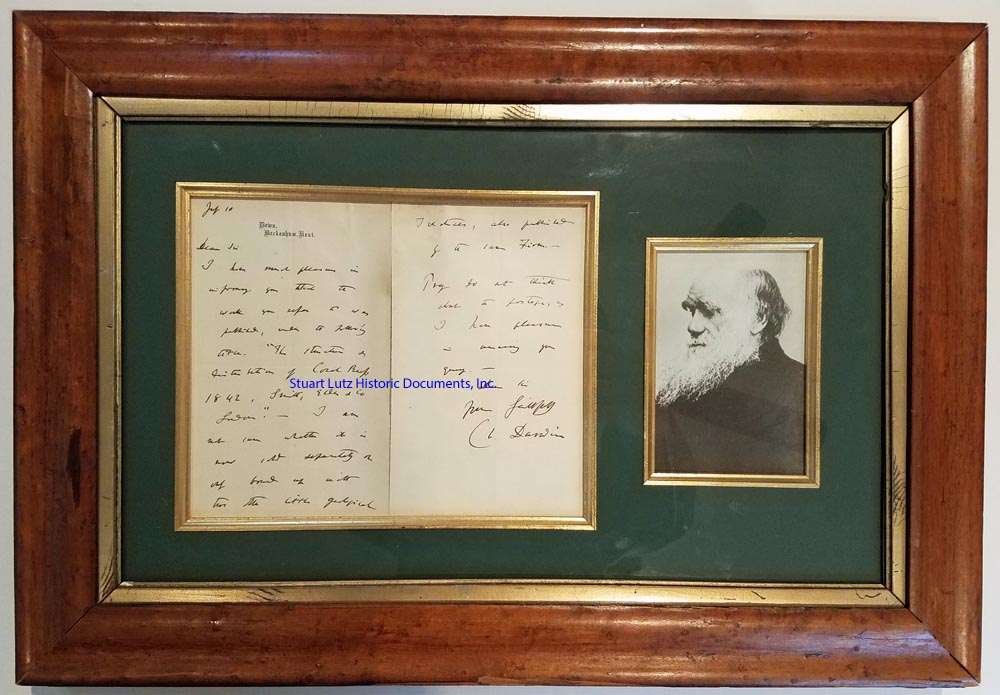 July 10
Down,
Beckenham, Kent.
Dear Sir
I have much pleasure in
informing you that the
work you refer to was
published, under the
title. "The Structure &
Distribution of Coral Reefs
1842, Smith, Elder & Co
London." — I am
not sure whether it is
now sold separately or
only bound up with
two other geological
Treatises, also published
by the same Firm.—
Pray do not think
about the postage, as
I have pleasure
in answering your
query —
Dear Sir
Yours faithfully
Ch. Darwin
Stuart Lutz Historic Documents, Inc.